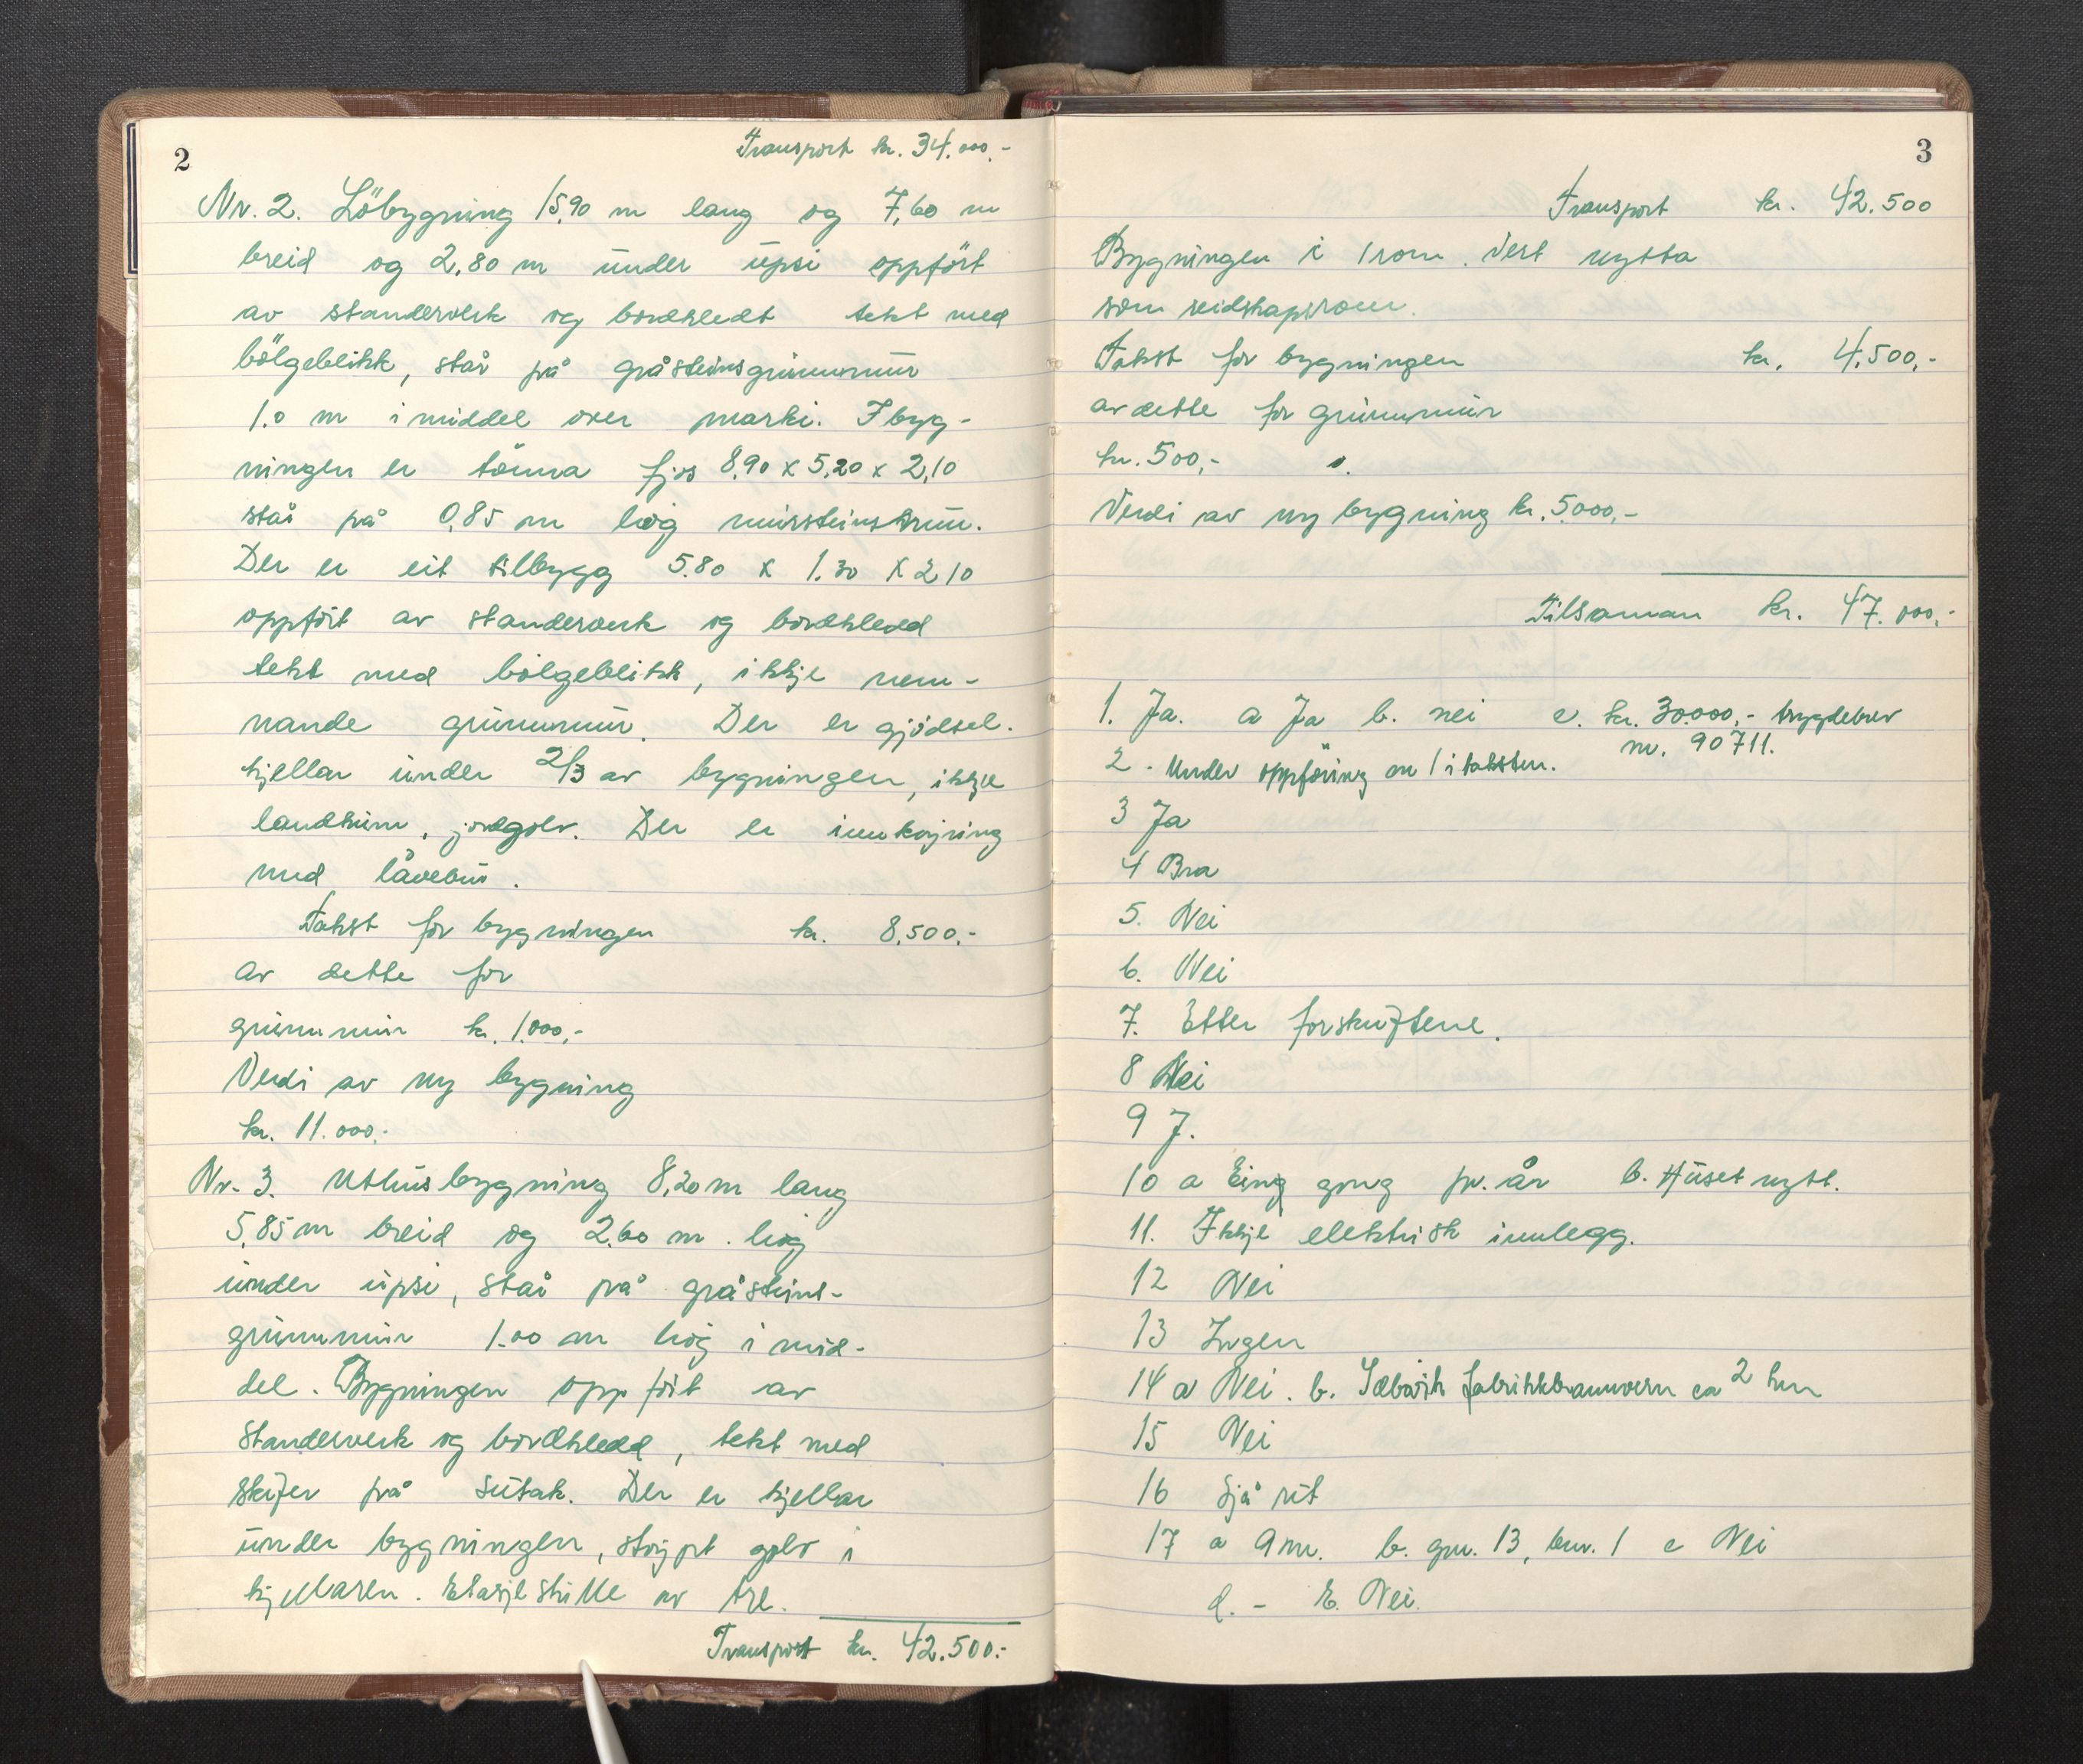 2
Transport kr. 34.000,-
Nr. 2. Löbygning 15,90 m lang og 7,60 m
breid og 2,80 m under upsi oppfört
av standerverk og bordkledt tekt med
bölgeblikk, står på gråsteinsgrunnmur
1.0 m i middel over marki. I byg-
ningen er tömra fjos 8,90 x 5,20 x 2,10
står på 0,85 m høg mursteinskrun.
Der er eit tilbygg 5.80 x 1.30 x 2,10
oppfört av standerverk og bordkledd
tekt med bölgeblikk, ikkje nem-
nande grunnmur. Der er gjödsel-
kjellar under 2/3 av bygningen, ikkje
landkum, jordgolv. Der er innkøjring
med låvebru.
Takst for bygningen kr. 8,500.-
av dette for
grunnmur kr. 1.000,-
Verdi av ny bygning
kr. 11.000,-
Nr. 3. Uthusbygning 8,20 m lang
5,85 m breid og 2,60 m. høg
under upsi, står på gråsteins-
grunnmur 1.00 m høg i mid-
del. Bygningen oppfört av
standerverk og bordkledd, tekt med
skifer på sutak. Der er kjellar
under bygningen, støypt golv i
kjellaren. Etasjeskille av tre.
Transport kr. 42.500.-
3
Transport kr. 42.500
Bygningen i 1 rom. Vert nytta
som reidskapsrom.
Takst for bygningen kr. 4.500,-
av dette for grunnmur
kr. 500,-
Verdi av ny bygning kr. 5000,-
Tilsaman kr. 47.000,-
1. Ja. a Ja b. nei c. kr. 30000,- trygdebrev
nr. 90711.
2. Under oppföring nr 1 i taksten.
3 Ja
4 Bra
5. Nei
6. Nei
7. Etter forskriftene.
8 Nei
9 J.
10 a Eing gong pr. år b. Huset nytt.
11. Ikkje elektrisk innlegg.
12 Nei
13 Ingen
14 a Nei. b. fabrikkbrannvern ca 2 km
15 Nei
16 Sjå rit
17 a 9 m. b. gnr. 13, bnr. 1 c Nei
d. - E. Nei.